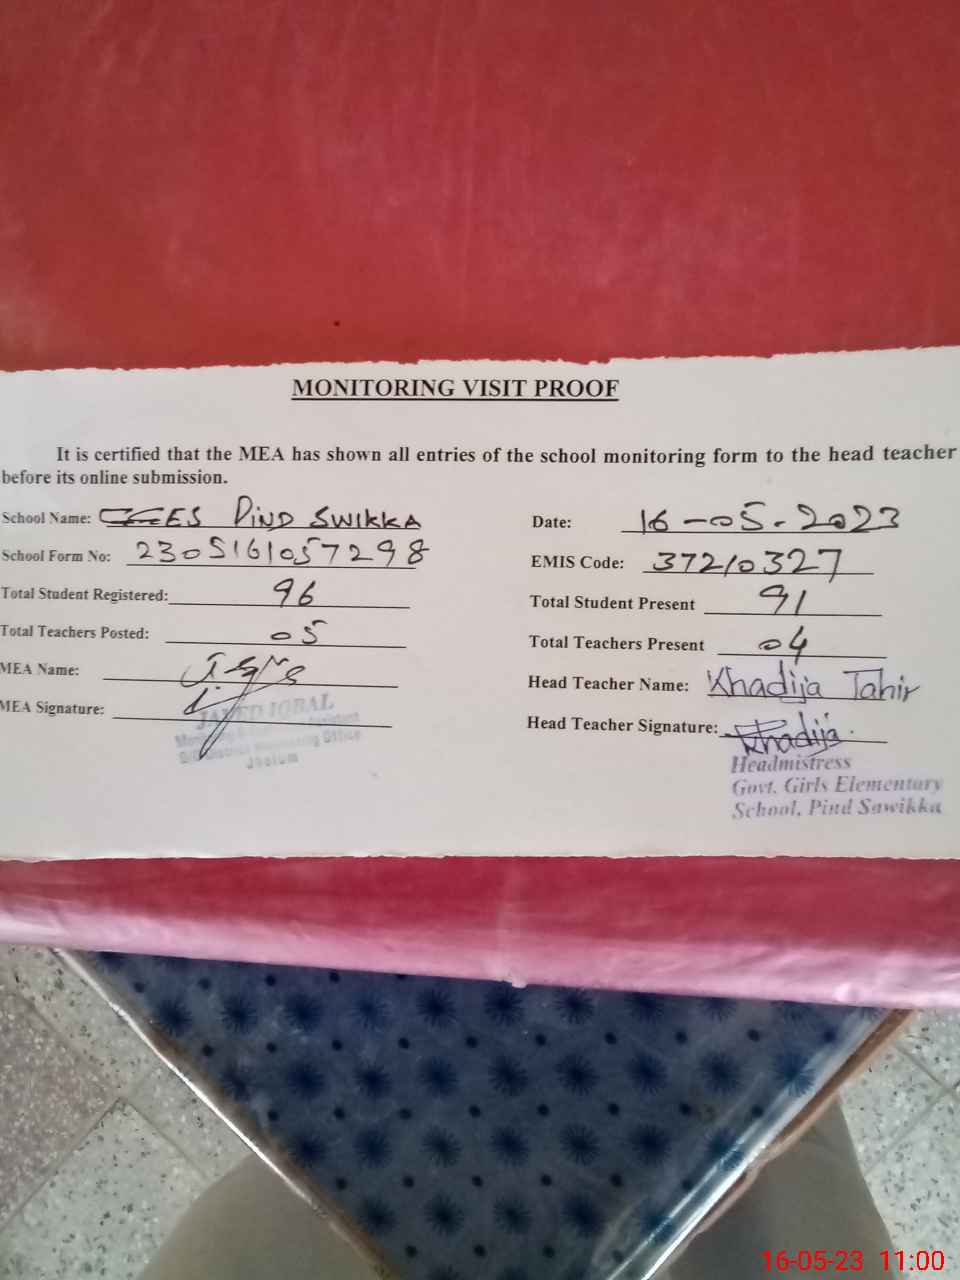 MONITORING VISIT PROOF
It is certified that the MEA has shown all entries of the school monitoring form to the head teacher
before its online submission.
School Name: GGES PIND SWIKKA
Date: 16-05-2023
School Form No: 2305161057298
EMIS Code: 37210327
Total Student Registered: 96
Total Student Present 91
Total Teachers Posted: 05
Total Teachers Present 04
MEA Name:
Head Teacher Name: Khadija Tahir
MEA Signature:
Head Teacher Signature: Khadija
JAVED IQBAL
Monitoring & Assistant
District Monitoring Office
Jhelum
Headmistress
Govt. Girls Elementary
School, Pind Sawikka
16-05-23 11:00